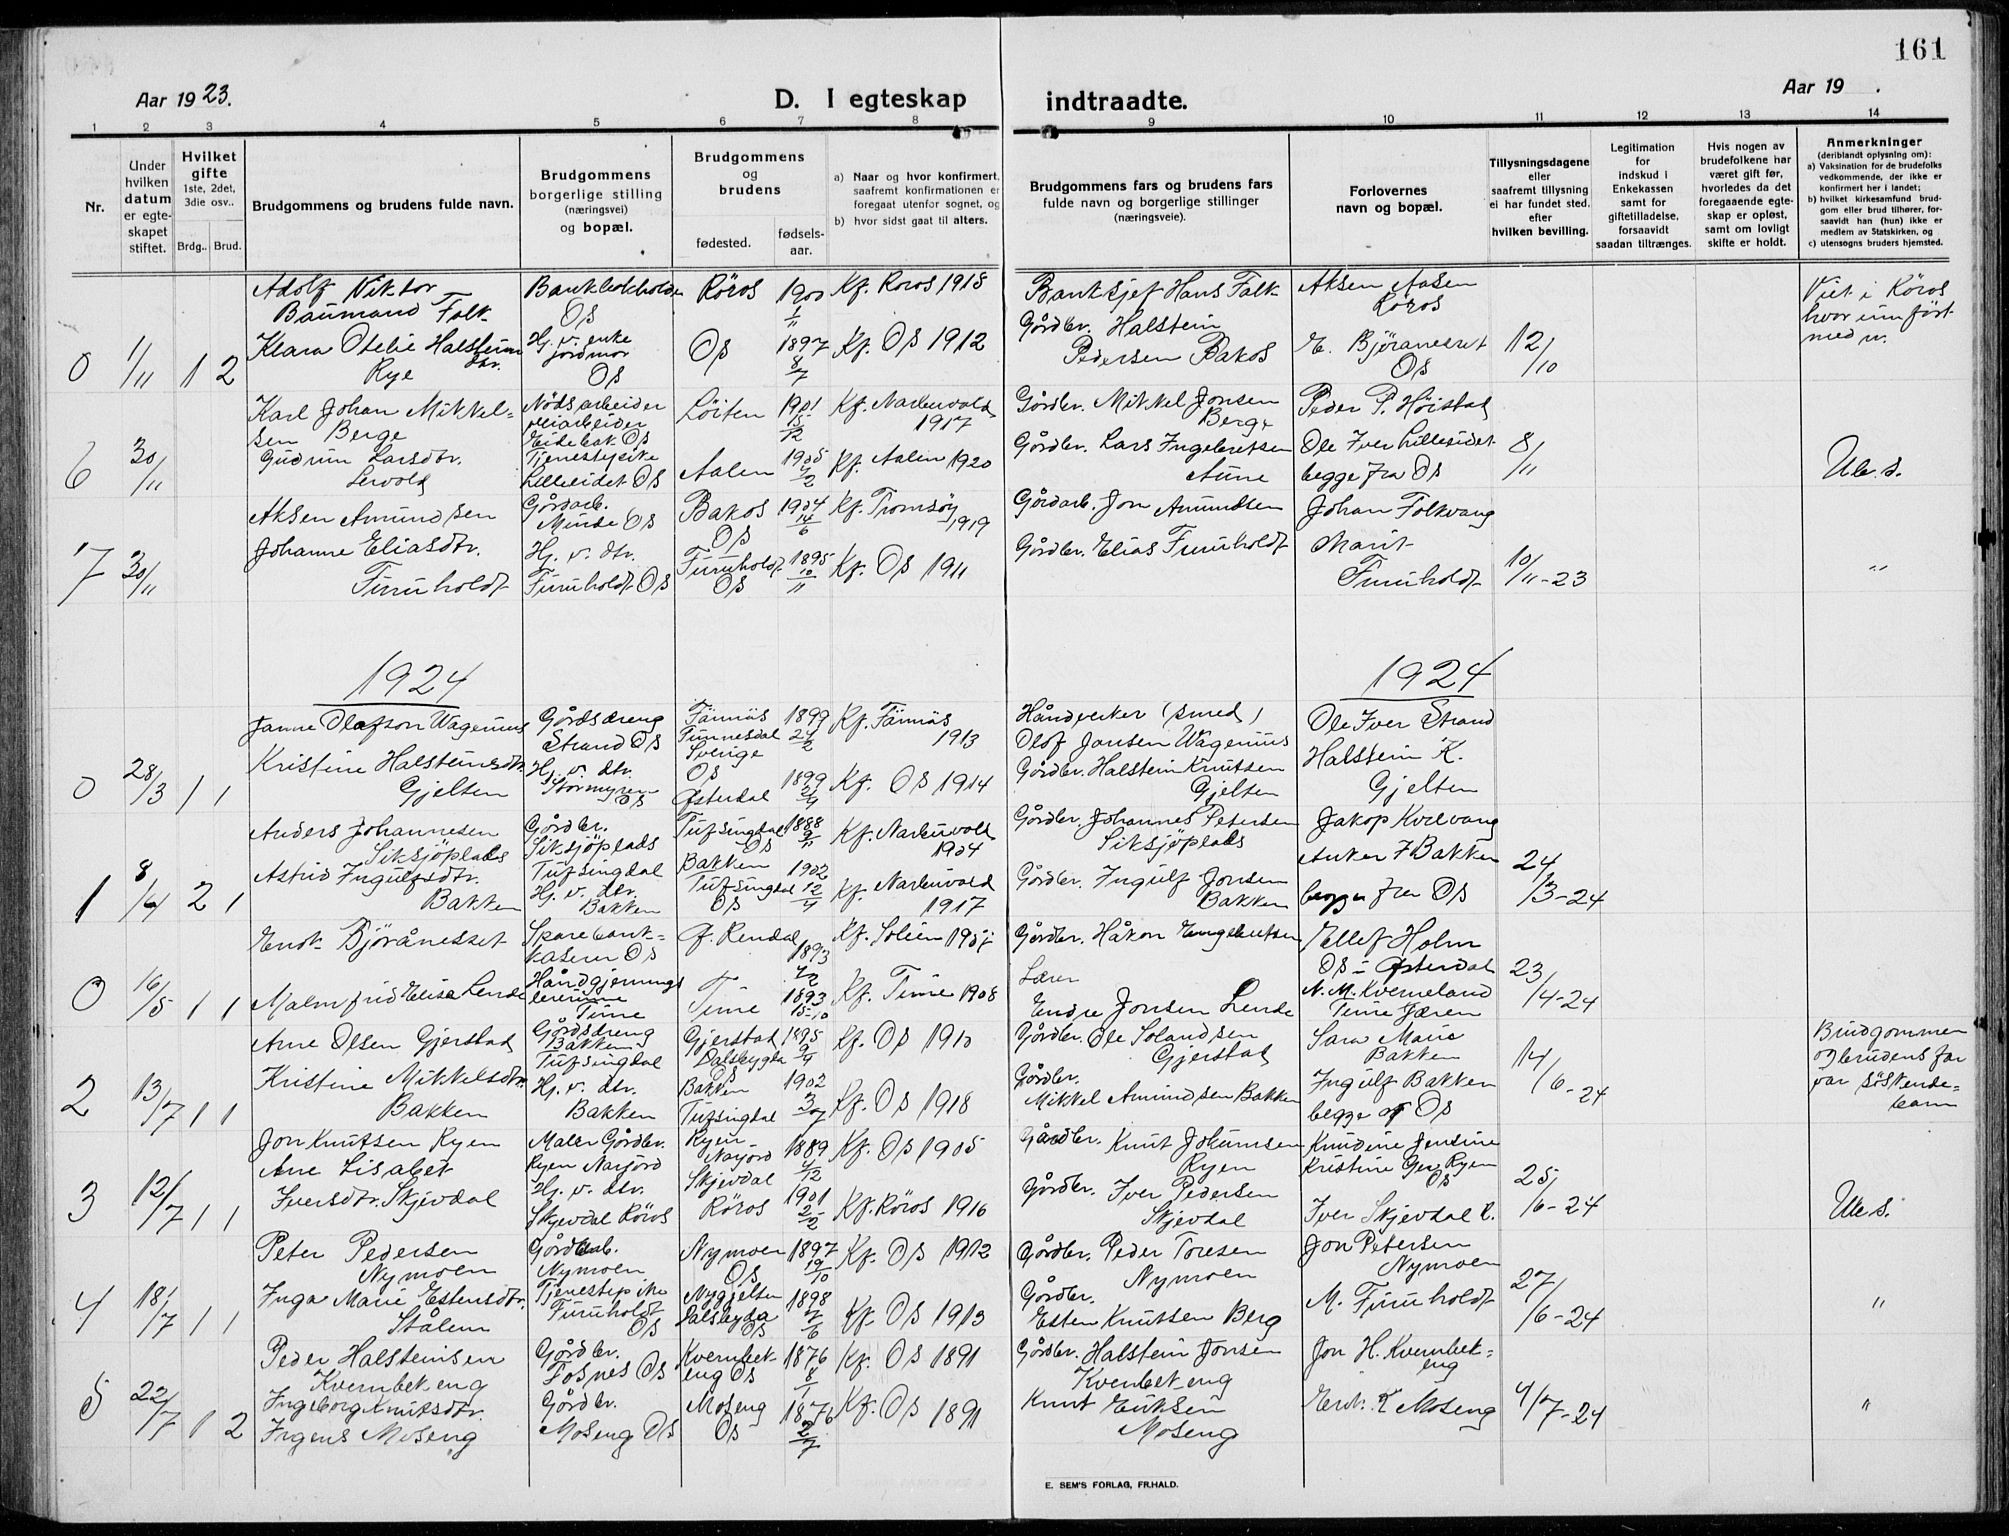 161
Aar 1923.
D. I egteskap indtraadte.
Aar 19 .
1 2 3 4 5 6 7 8 9 10 11 12 13 14
Nr.
Under hvilken datum er egte-skapet stiftet.
Hvilket gifte
1ste, 2det, 3die osv..
Brdg.. Brud.
Brudgommens og brudens fulde navn.
Brudgommens borgerlige stilling (næringsvei) og bopæl.
Brudgommens og brudens
fødested.
fødsels-aar.
a) Naar og hvor konfirmert, saafremt konfirmationen er foregaat utenfor sognet, og
b) hvor sidst gaat til alters.
Brudgommens fars og brudens fars fulde navn og borgerlige stillinger (næringsveie).
Forlovernes navn og bopæl.
Tillysningsdagene eller saafremt tillysning ei har fundet sted. efter hvilken bevilling.
Legitimation for indskud i Enkekassen samt for giftetilladelse, forsaavidt saadan tiltrænges.
Hvis nogen av brudefolkene har været gift før, hvorledes da det foregaaende egte-skap er opløst, samt om lovligt skifte er holdt.
Anmerkninger
(deriblandt oplysning om):
a) Vaksination for de brudefolks vedkommende, der ikke er konfirmert her i landet;
b) hvilket kirkesamfund brud-gom eller brud tilhører, for-saavidt han (hun) ikke er medlem av Statskirken, og
c) utensogns bruders hjemsted.
0 1/11 1 2
Adolf Viktor
Baumand Falk
OS
Røros 1900 1/11 Kf. Røros 1918
Banksjef Hans Falk
Aksen Aasen
Røros
Viet i Røros
hvor innført
med nr.
Klara Otelie Halstein
dtr.
Rye
Hj. v. enke
jordmor
OS
OS 1897 8/7 Kf. OS 1912
Gårdbr. Halstein
Pedersen Bakos
E. Bjøranesset
OS
12/10
6 30/11
Karl Johan Mikkel=
sen Berge
Løiten 1901 15/12 Kf. Narbuvold
1917
Gårdbr. Mikkel Jonsen
Berge
Peder P. Høistad
Gudrun Larsdtr.
Tjenestepike
Lilleeidet OS
Aalen 1905 Kf. Aalen 1920
Gårdbr. Lars Ingebretsen
Aune
Ole Iver Lilleeidet
begge fra OS
8/11
Ub. s.
7 30/11
Aksen Amundsen
Gårdarb.
OS
Bakos
OS
1904 14/6 Kf. Tromsøy
1919
Gårdarb. Jon Amundsen
Johan Folkvang
Johanne Eliasdtr.
Furuholdt
Hj. v. dtr.
Furuholdt OS
Furuholdt
OS
1895 10/11 Kf. OS 1911
Gårdbr. Elias Furuholdt
Marit
Furuholdt
10/11-23
"
1924
1924
0 28/3 1 1
Olafson Wagenius
Gårdsdreng
Strand OS
Tännäs
Funnesdal
Sverige
1899 24/2 Kf. Tännäs
1913
Håndverker (smed)
Olof Jonsen Wagenius
Ole Iver Strand
Kristine Halsteinsdtr.
Gjelten
Hj. v. dtr.
Stormyren
OS
OS
Østerdal
1899 Kf. OS 1914
Gårdbr. Halstein Knutsen
Gjelten
Halstein K.
Gjelten
1 8/4 2 1
Anders Johannesen
Siksjøplads
Gårdbr.
Siksjøplads
Tufsingdal
Tufsingdal
OS
1888 9/11 Kf. Narbuvold
1904
Gårdbr. Johannes Petersen
Siksjøplads
Jakop Kvilvang
Astrid Ingulfsdtr.
Bakken
Hj. v. dtr.
Bakken
Bakken
Tufsingdal
OS
1902 Kf. Narbuvold
1917
Gårdbr. Ingulf Jonsen
Bakken
Anker I Bakken
begge fra OS
24/3-24
0 16/5 1 1
Erik Bjørånesset
Sparebank=
kaserer OS
Ø. Rendal
1893
Gårdbr. Håkon Engebretsen
Ellef Holm
OS i Østerdal
Malmfrid Elise Lende
Håndgjernings
lererinne
Time
Time 1893 15-10 Kf. Time 1908
Lærer
Endre Jonsen Lende
N. M. Kverneland
Time Jæren
23/4-24
2 13/7 1 1
Arne Olsen Gjerstad
Gårdsdreng
Bakken
Tufsingdal
Gjerstad
Dalsbygda
OS
1895 9/9 Kf. OS 1910
Gårdbr. Ole Solandsen
Gjerstad
Sara Marie
Bakken
Kristine Mikkelsdtr.
Bakken
Hj. v. dtr.
Bakken
Bakken
Tufsingdal
1902 3/7 Kf. OS 1918
Gårdbr.
Mikkel Amundsen Bakken
Ingulf Bakken
begge af OS
14/6-24
Brudgommen
og brudens far
var søskende=
barn
3 12/7 1 1
Jon Knutsen Ryen
Maler Gårdbr.
Ryen Narjord
Ryen
Narjord
1889 4/12 Kf. OS 1905
Gårdbr. Knut Johansen
Ryen
Knudine Jensine
Kristine Ryen
OS
Ane Lisabet
Iversdtr. Skjevdal
Hj. v. dtr.
Skjevdal Røros
Skjevdal
Røros
1901 2/2 Kf. Røros 1916
Gårdbr. Iver Pedersen
Skjevdal
Iver Skjevdal R.
25/6-24
Ub s.
4 18/7 1 1
Peter Pedersen
Nymoen
Gårdarb.
Nymoen
Nymoen
OS
1897 19/10 Kf. OS 1912
Gårdbr. Peder Toresen
Nymoen
Jon Petersen
Nymoen
Inga Marie Estensdtr.
Stalem
Tjenestepike
Furuholdt
OS
Nygjelten
Dalsbygda
OS
1898 7/6 Kf. OS 1913
Gårdbr.
Esten Knutsen Berg
M. Furuholdt
27/6-24
"
5 22/7 1 2
Peder Halsteinsen
Kvernbekeng
Gårdbr.
Fosnes OS
Kvernbek-
eng OS
1876 8/1 Kf. OS 1891
Gårdbr. Halstein Jonsen
Kvenbekeng
Jon H. Kvernbek=
eng
Ingeborg Knutsdtr.
Irgens Moseng
Gårdbr.
Moseng OS
Moseng
OS
1876 2/7 Kf. OS 1891
Knut Eriksen
Moseng
Erik K Moseng
4/7-24
"
E. SEM'S FORLAG, FR.HALD.